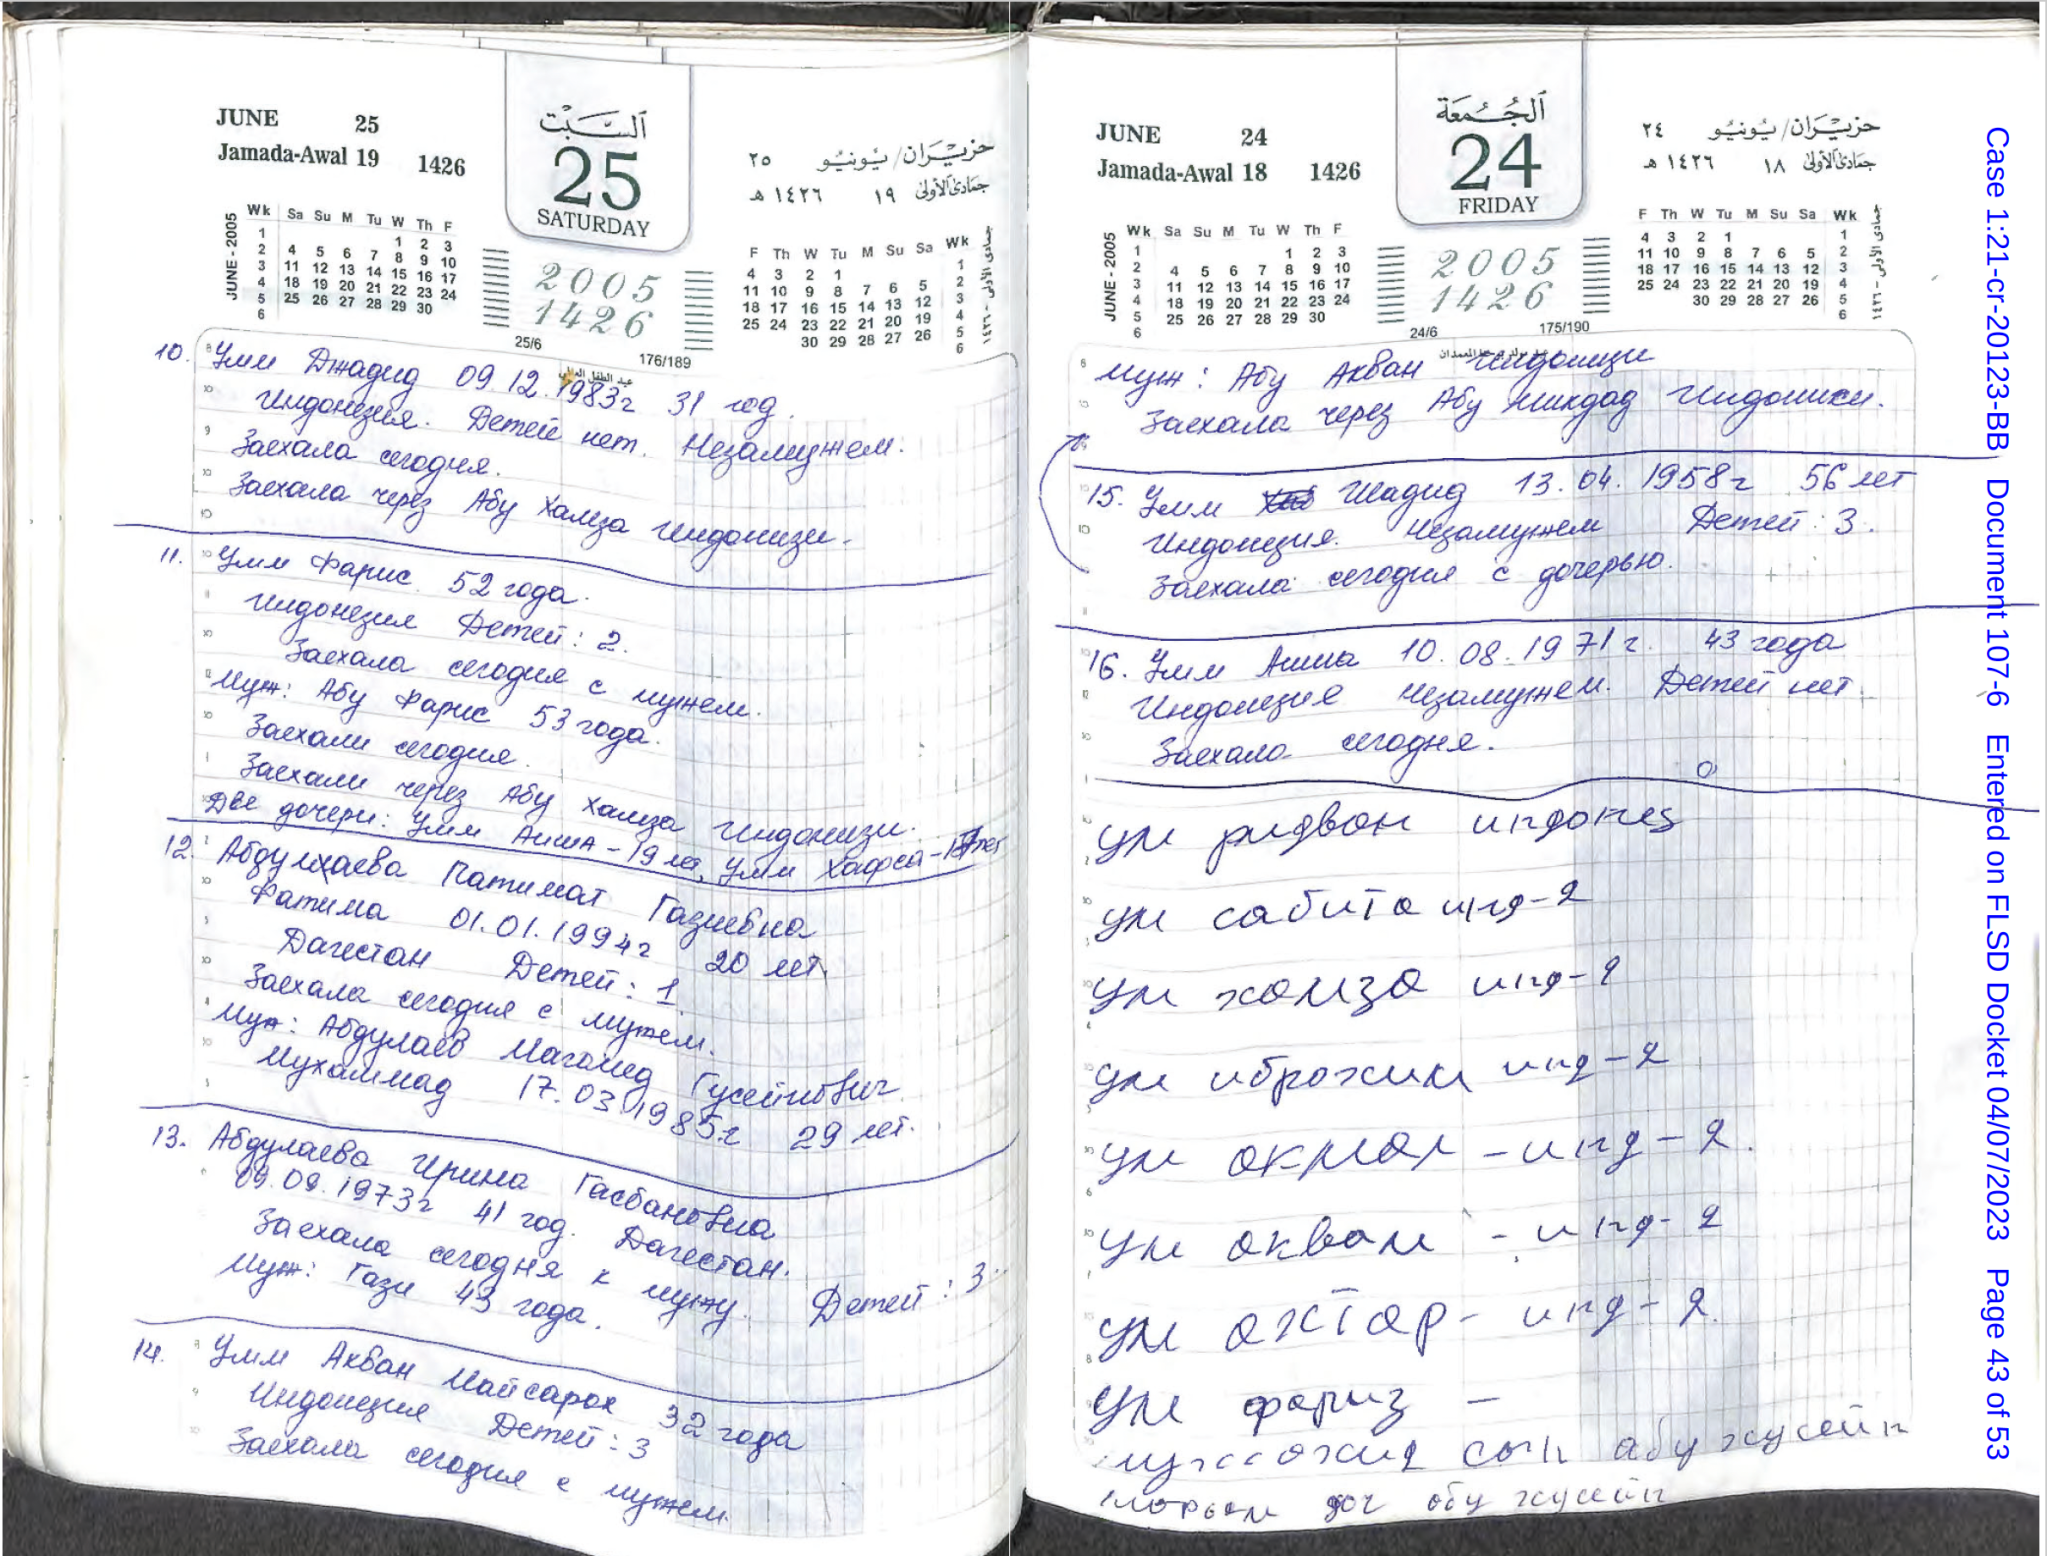 JUNE 25
Jamada-Awal 19 1426
السبت
25
SATURDAY
٢٥ حزيران/يونيو
١٤٢٦ هـ ١٩ جمادى الأولى
JUNE - 2005
Wk Sa Su M Tu W Th F
1 1 2 3
2 4 5 6 7 8 9 10
3 11 12 13 14 15 16 17
4 18 19 20 21 22 23 24
5 25 26 27 28 29 30
6
2005
1426
F Th W Tu M Su Sa Wk
4 3 2 1 1
11 10 9 8 7 6 5 2
18 17 16 15 14 13 12 3
25 24 23 22 21 20 19 4
30 29 28 27 26 5
6
جمادى الأولى - ١٤٢٦
25/6 176/189
10. Умм Джадид 09.12.1983г 31 год.
Индонезия. Детей нет. Незамужем.
Заехала сегодня.
Заехала через Абу Хамза Индонизи.
11. Умм Фарис 52 года.
Индонезия Детей: 2.
Заехала сегодня с мужем.
Муж: Абу Фарис 53 года.
Заехали сегодня.
Заехали через Абу Хамза Индонизи.
Две дочери: Умм Аиша - 19 лет, Умм Хафса -
12. Абдулхаева Патимат Газиевна
Фатима 01.01.1994г 20 лет
Дагестан Детей: 1
Заехала сегодня с мужем.
Муж: Абдулаев Магомед Гусейнович
Мухаммад 17.03.1985г 29 лет.
13. Абдулаева Ирина Гасбановна
09.09.1973г 41 год. Дагестан.
Заехала сегодня к мужу. Детей: 3.
Муж: Гази 43 года.
14. Умм Акван Майсарох 32 года
Индонезия Детей: 3
Заехала сегодня с мужем.
JUNE 24
Jamada-Awal 18 1426
الجمعة
24
FRIDAY
٢٤ حزيران/يونيو
١٤٢٦ هـ ١٨ جمادى الأولى
JUNE - 2005
Wk Sa Su M Tu W Th F
1 1 2 3
2 4 5 6 7 8 9 10
3 11 12 13 14 15 16 17
4 18 19 20 21 22 23 24
5 25 26 27 28 29 30
6
2005
1426
F Th W Tu M Su Sa Wk
4 3 2 1 1
11 10 9 8 7 6 5 2
18 17 16 15 14 13 12 3
25 24 23 22 21 20 19 4
30 29 28 27 26 5
6
جمادى الأولى - ١٤٢٦
24/6 175/190
Муж: Абу Акван Индонизи
Заехала через Абу Микдад Индониси.
15. Умм Шадид 13.04.1958г 56 лет
Индонезия. Незамужем Детей: 3.
Заехала сегодня с дочерью.
16. Умм Аиша 10.08.1971г. 43 года
Индонезия Незамужем. Детей нет.
Заехала сегодня.
ум ридвон индонез
ум сабита инд-2
ум хамза инд-2
ум иброхим инд-2
ум акмал - инд - 2.
ум аквам - инд-2
ум ахтар - инд-2.
ум фариз -
сын абу хусейн
марьям доч абу хусейн
Case 1:21-cr-20123-BB Document 107-6 Entered on FLSD Docket 04/07/2023 Page 43 of 53